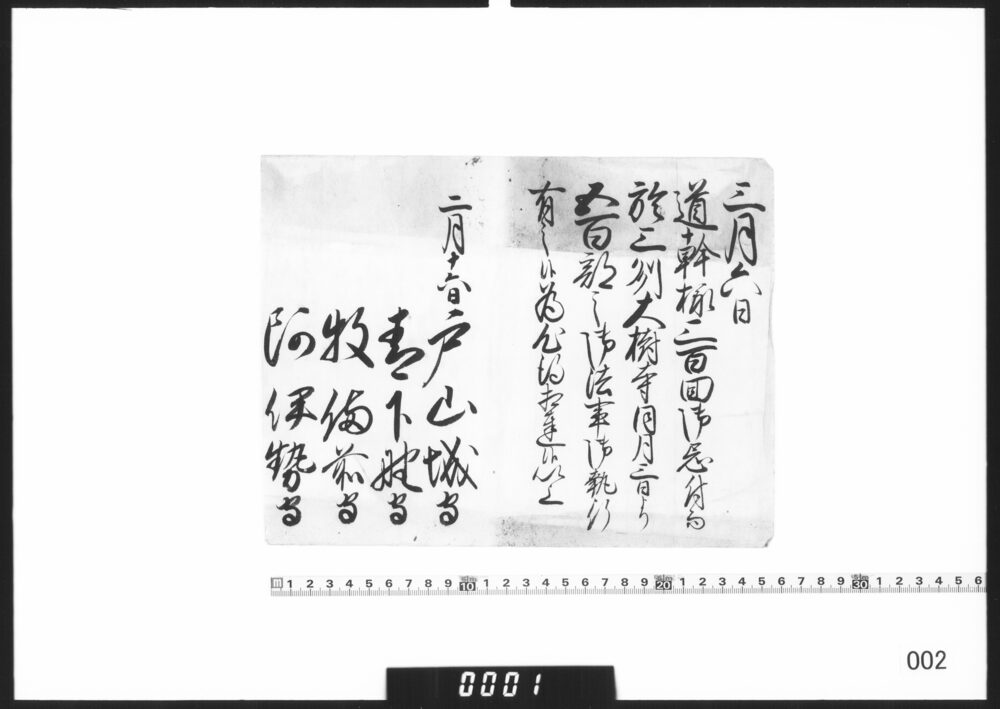 三月六日
道幹様三百回御忌付而
於三州大樹寺同月三日ゟ
五百部之御法事御執行
有之候為心得相達候以上
二月十六日 戸山城守
青下野守
牧備前守
阿伊勢守
m 1 2 3 4 5 6 7 8 9 10 1 2 3 4 5 6 7 8 9 20 1 2 3 4 5 6 7 8 9 30 1 2 3 4 5 6
002
0001